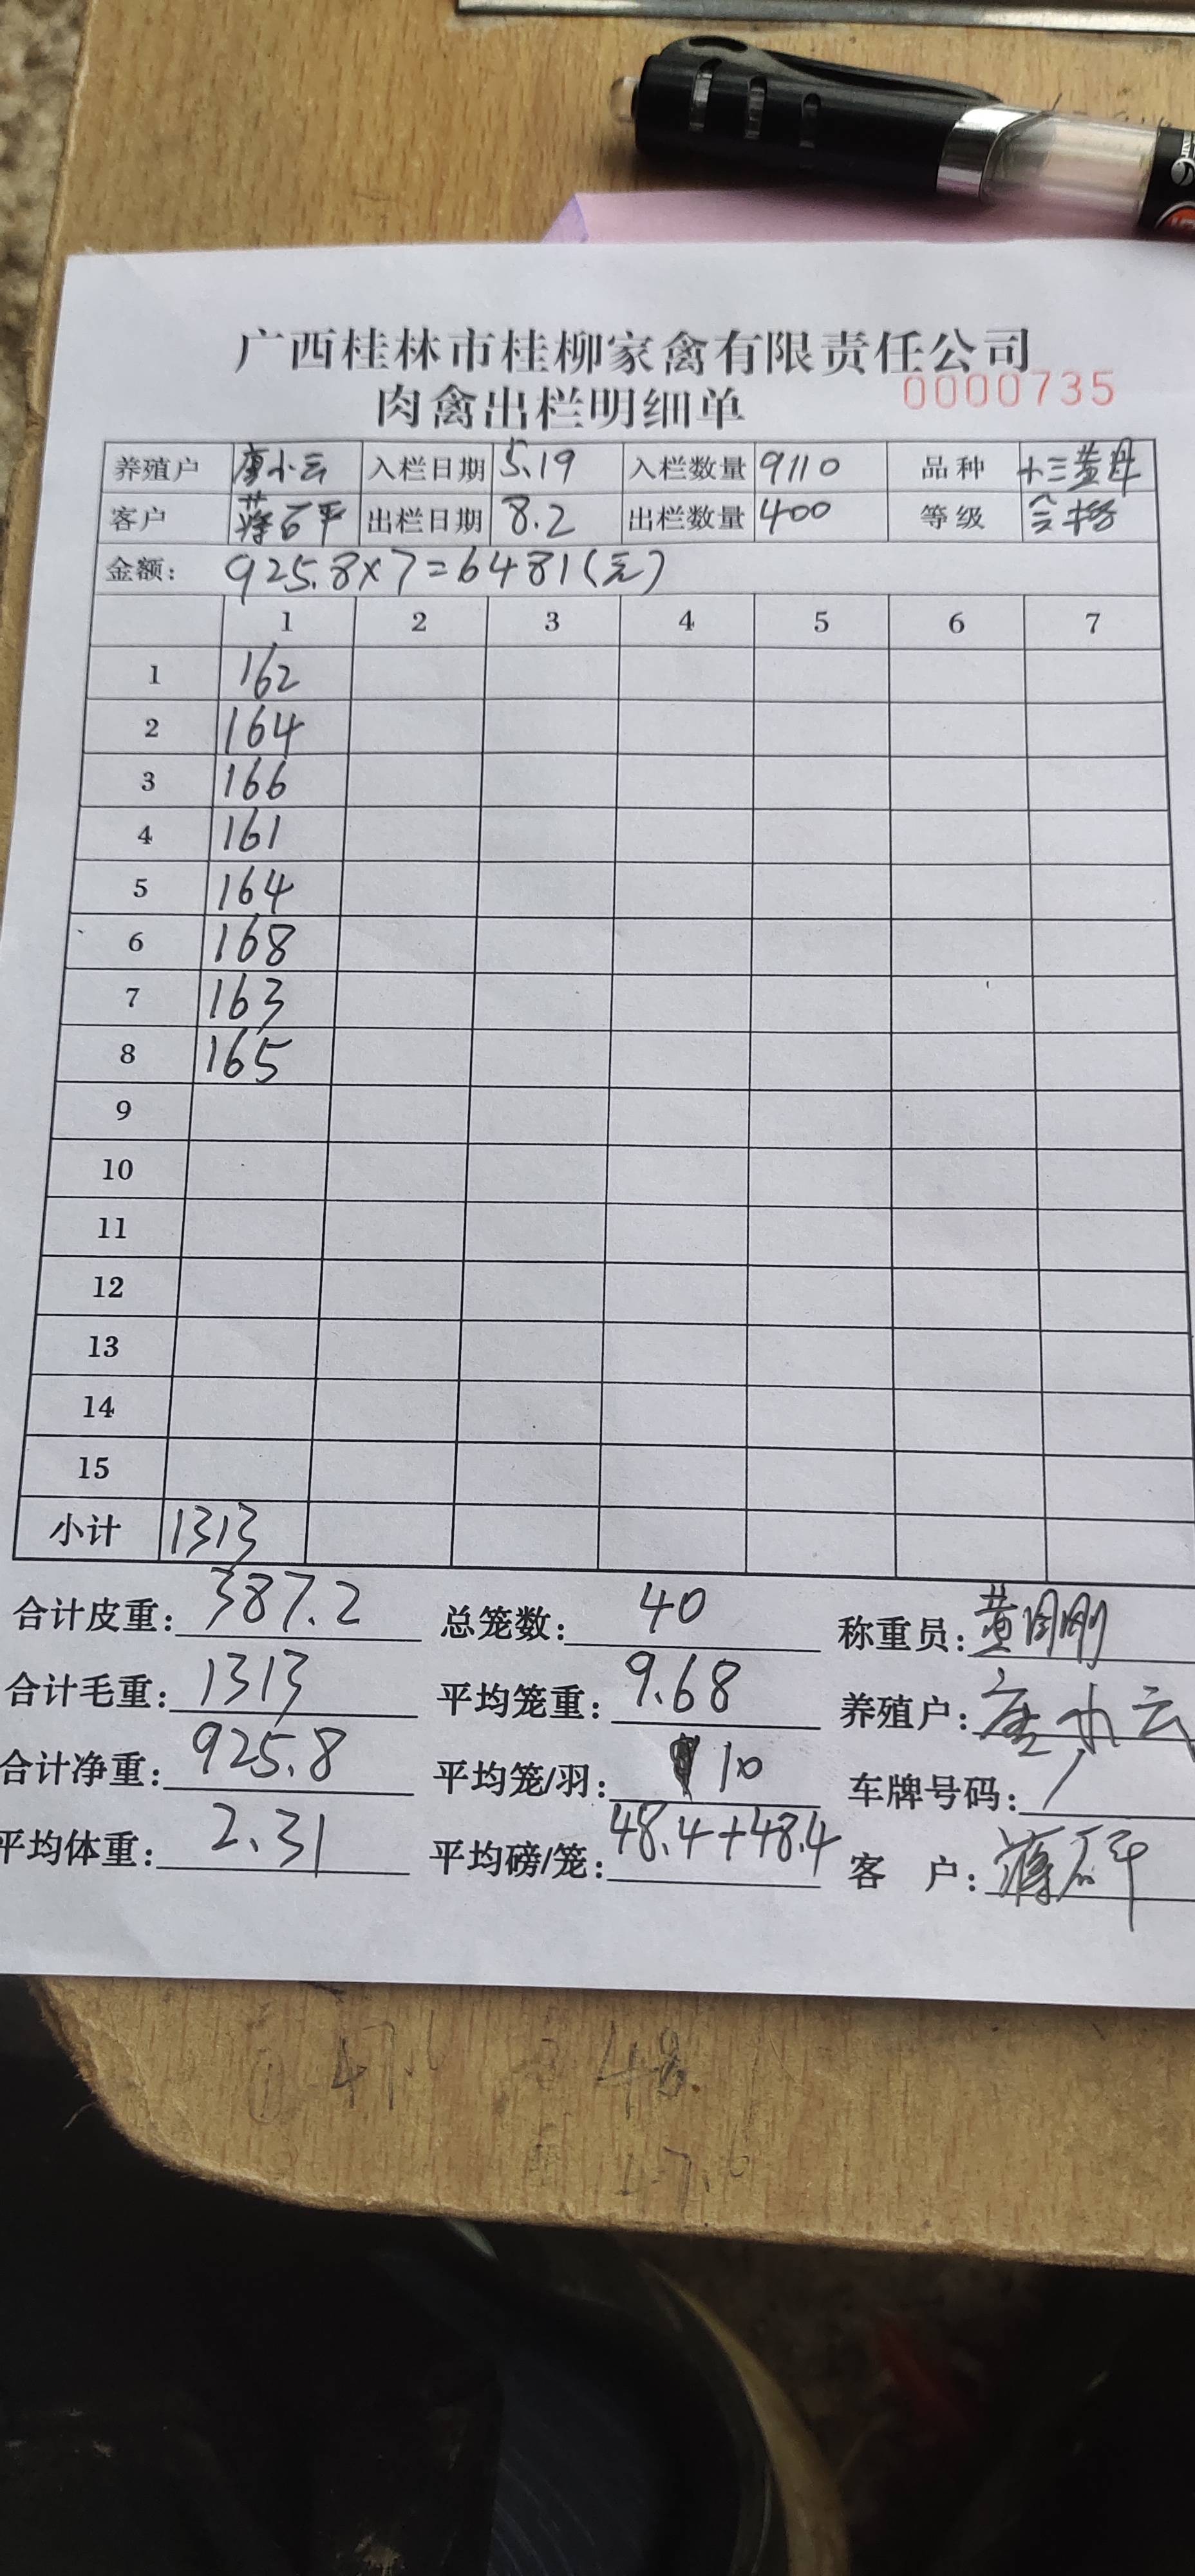 广西桂林市桂柳家禽有限责任公司
肉禽出栏明细单 0000735
养殖户 唐小云 入栏日期 5.19 入栏数量 9110 品种 十三黄母
客户 蒋石平 出栏日期 8.2 出栏数量 400 等级 合格
金额: 925.8×7=6481(元)
1 2 3 4 5 6 7
1 162
2 164
3 166
4 161
5 164
6 168
7 163
8 165
9
10
11
12
13
14
15
小计 1313
合计皮重: 387.2 总笼数: 40 称重员: 黄刚
合计毛重: 1313 平均笼重: 9.68 养殖户: 唐小云
合计净重: 925.8 平均笼/羽: 10 车牌号码: /
平均体重: 2.31 平均磅/笼: 48.4+48.4 客 户: 蒋石平